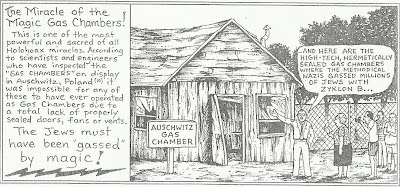 The Miracle of the
Magic Gas Chambers!
This is one of the most
powerful and sacred of all
Holohoax miracles. According
to scientists and engineers
who have inspected the
"GAS CHAMBERS" on display
in Auschwitz, Poland, it
was impossible for any of
these to have ever operated
as Gas Chambers due to
a total lack of properly
sealed doors, fans or vents.
The Jews must
have been "gassed"
by magic!
AUSCHWITZ
GAS
CHAMBER
...AND HERE ARE THE
HIGH-TECH, HERMETICALLY
SEALED GAS CHAMBERS
WHERE THE METHODICAL
NAZIS GASSED MILLIONS
OF JEWS WITH
ZYKLON B...